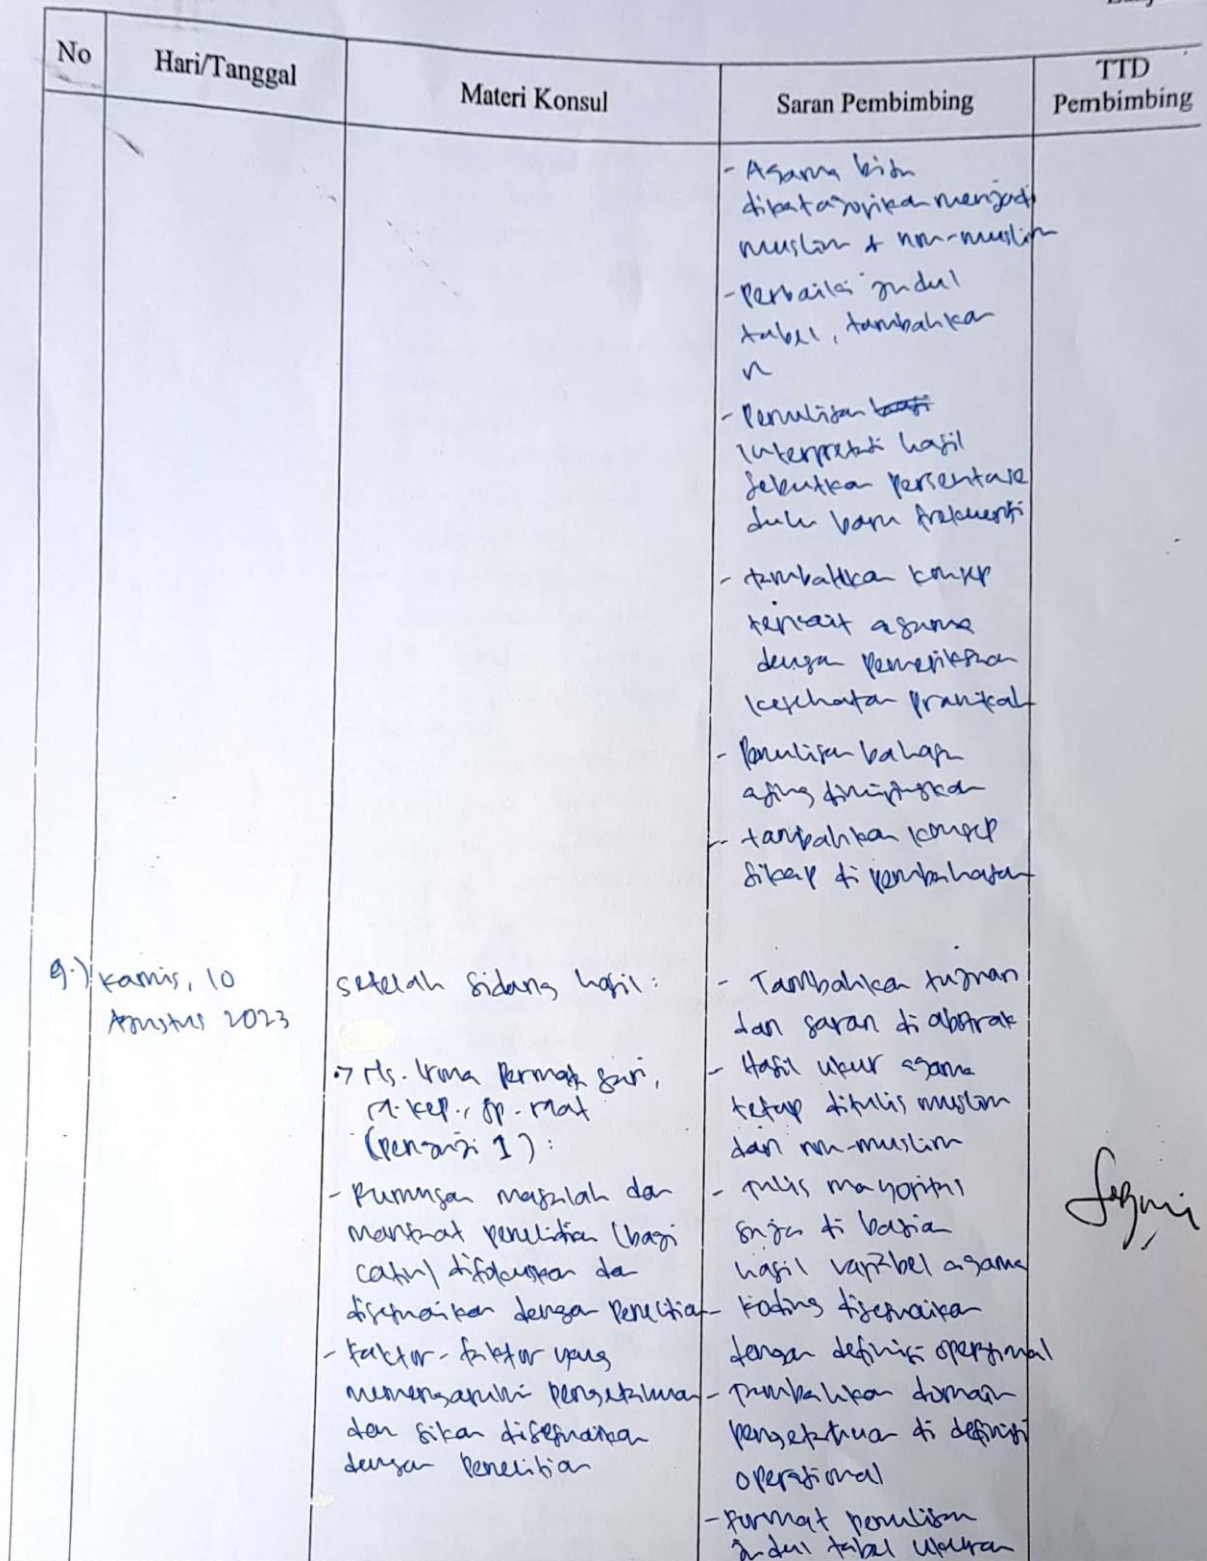 No
Hari/Tanggal
Materi Konsul
Saran Pembimbing
TTD
Pembimbing
- Agama bisa
dikatagorikan menjadi
muslim & non-muslim
- Perbaiki judul
tabel, tambahkan
n
- Penulisan
Interpretasi hasil
sebutkan persentase
dulu baru frekuensi
- tambahkan konsep
terkait agama
dengan pemeriksaan
kesehatan pranikah
- Penulisan bahasa
asing dimiringkan
- tambahkan konsep
sikap di pembahasan
9.)
Kamis, 10
Agustus 2023
setelah sidang hasil:
•> Ns. Irma Permata Sari,
M.Kep., Sp.Mat
(Penguji 1):
- Rumusan masalah dan
manfaat penelitian (bagi
catin) difokuskan dan
disesuaikan dengan Penelitian
- Faktor-faktor yang
memengaruhi pengetahuan
dan sikap disesuaikan
dengan Penelitian
- Tambahkan tujuan
dan saran di abstrak
- Hasil ukur agama
tetap ditulis muslim
dan non-muslim
- Tulis mayoritas
saja di bagian
hasil variabel agama
- Koding disesuaikan
dengan definisi operasional
- Tambahkan domain
pengetahuan di definisi
operasional
- Format penulisan
judul tabel ukuran